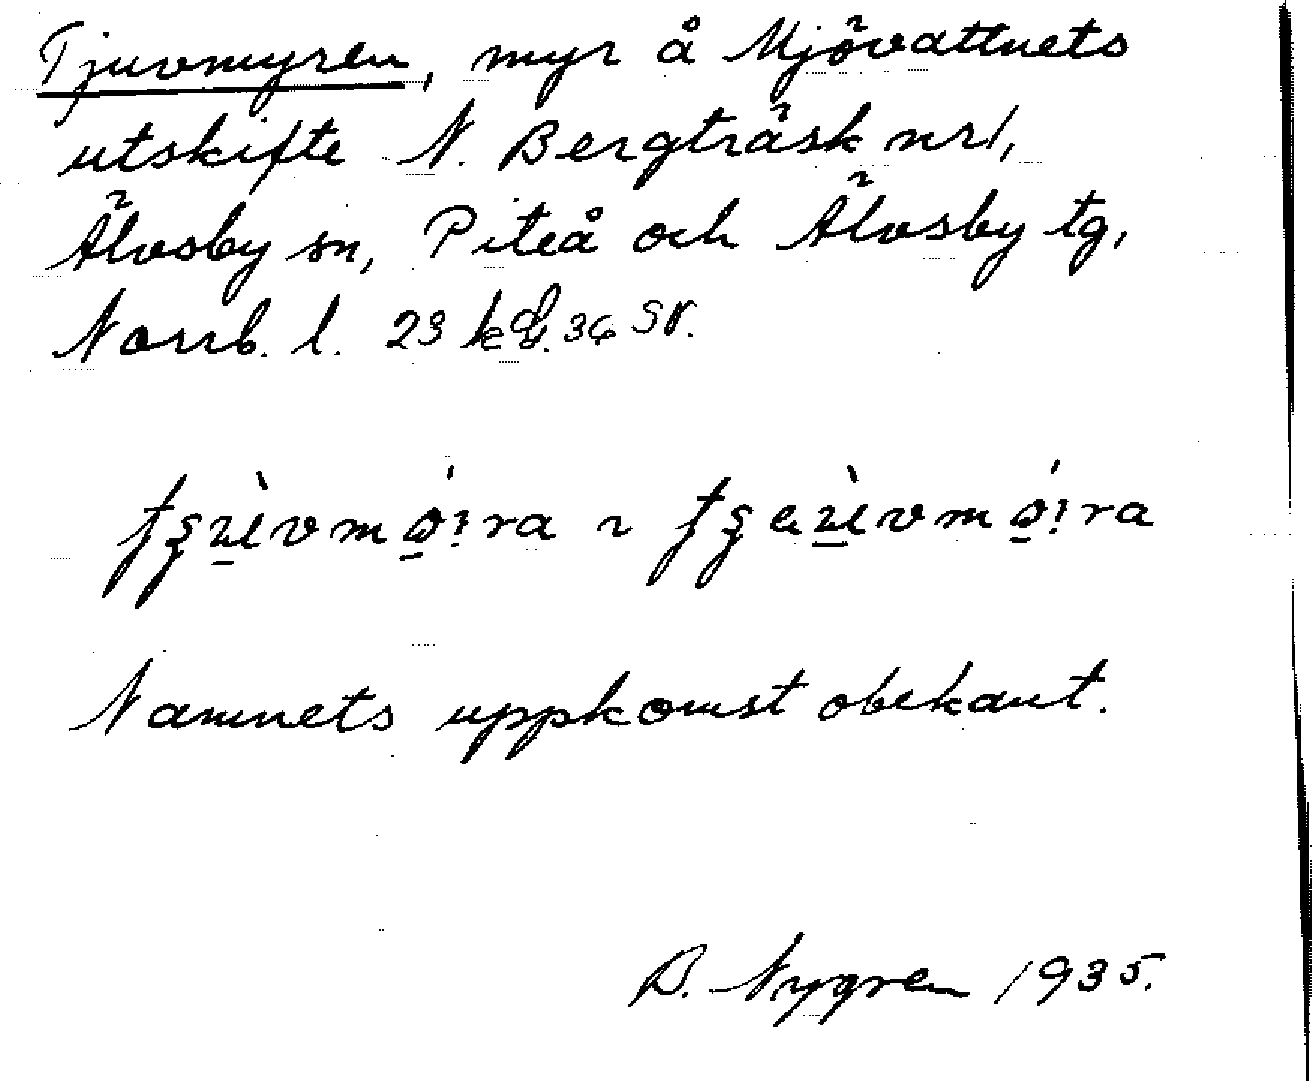 Tjuvmyren, myr å Mjövattnets
utskifte N. Bergträsk nr 1,
Älvsby sn, Piteå och Älvsby tg,
Norrb. l. 23 kbl. 36 SV.
Namnets uppkomst obekant.
B. Nygren 1935.